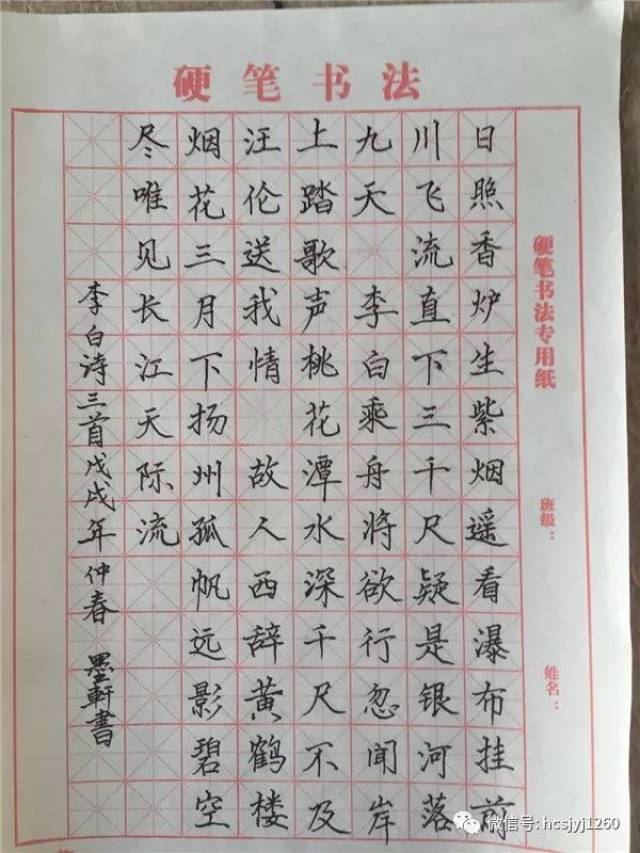 硬笔书法
硬笔书法专用纸
班级：
姓名：
日照香炉生紫烟遥看瀑布挂前
川飞流直下三千尺疑是银河落
九天 李白乘舟将欲行忽闻岸
上踏歌声桃花潭水深千尺不及
汪伦送我情 故人西辞黄鹤楼
烟花三月下扬州孤帆远影碧空
尽唯见长江天际流
李白诗三首戊戌年仲春 墨軒書
微信号: hcsjyj1260